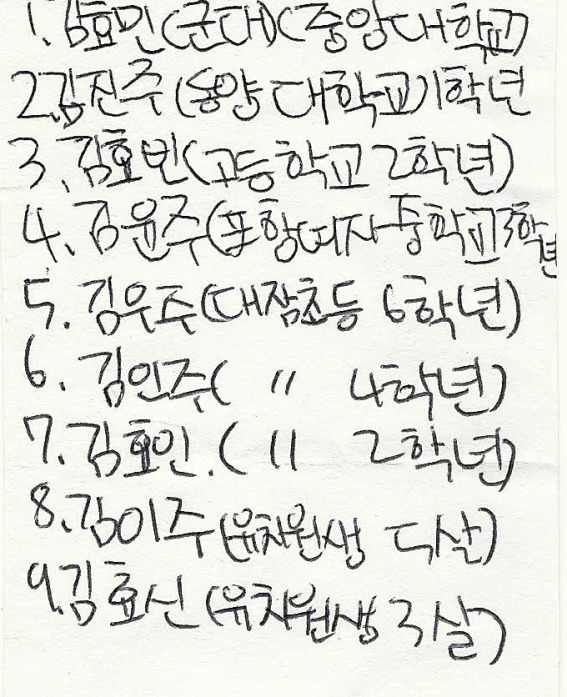 1. 김효민(군대)(중앙대학교)
2. 김진주(동양대학교)1학년
3. 김효빈(고등학교 2학년)
4. 김윤주(포항여자중학교3학년
5. 김우주(대잠초등 6학년)
6. 김인주( 〃 4학년)
7. 김효인.( 〃 2학년)
8. 김이주(유치원생 5살)
9. 김효신(유치원생 3살)